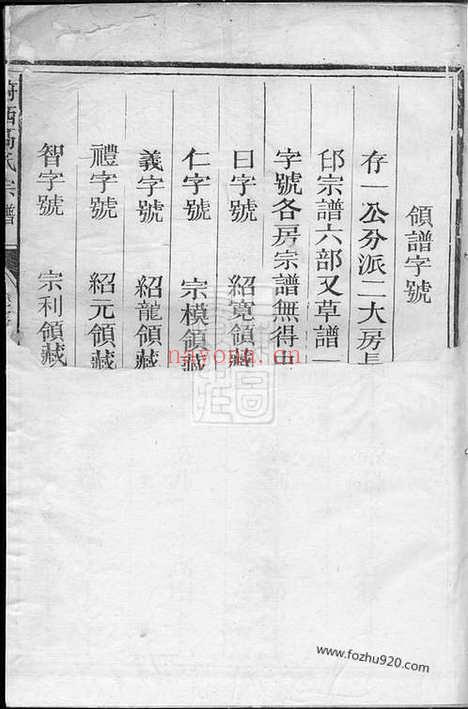 領譜字號
存一公分派二大房長
邱宗譜六部又草譜一
字號各房宗譜無得由
曰字號 紹寬領藏
仁字號 宗模領藏
義字號 紹龍領藏
禮字號 紹元領藏
智字號 宗利領藏
西高氏宗譜
nayona.cn
www.fozhu920.com